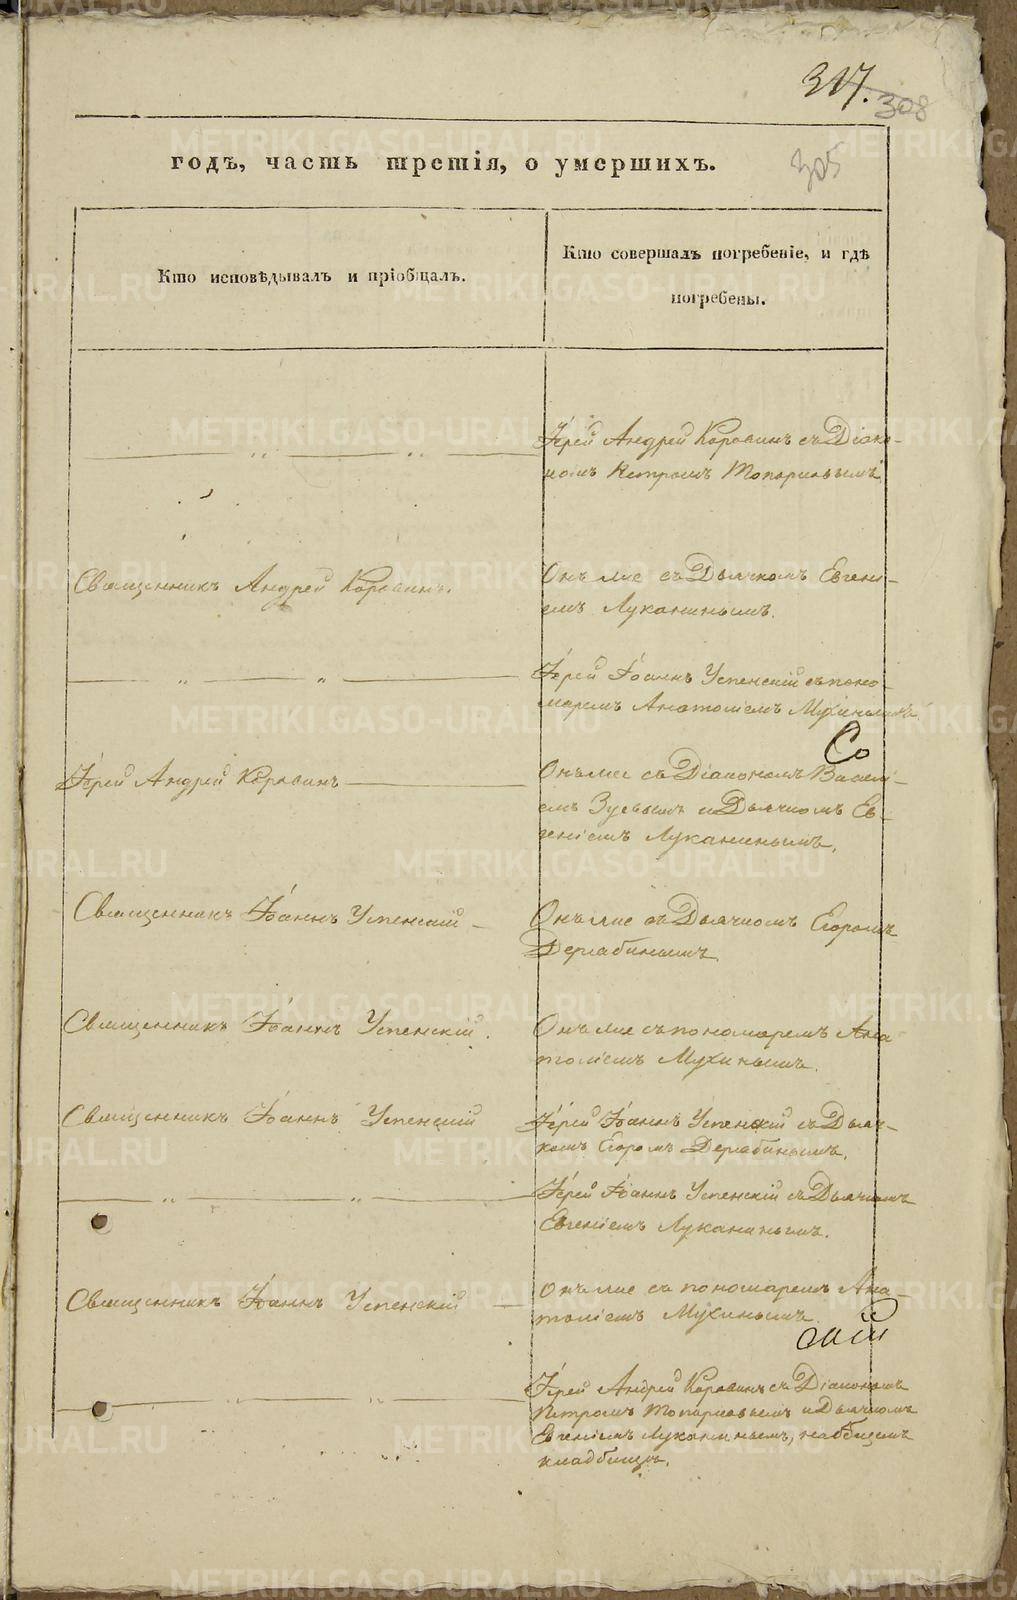 317.
308
305
годъ, часть третія, о умершихъ.
Кто исповѣдывалъ и пріобщалъ.
Кто совершалъ погребеніе, и гдѣ
погребены.
Іерей Андрей Коровинъ съ Діако-
номъ Петромъ Топорковымъ.
Священникъ Андрей Коровинъ.
Онъ же съ Дьячкомъ Евгені-
емъ Луканинымъ.
Іерей Іоаннъ Успенскій съ поно-
маремъ Анатоліемъ Мухинымъ
Со
Іерей Андрей Коровинъ
Онъ же съ Діакономъ Василі-
емъ Зуевымъ и Дьячкомъ Ев-
геніемъ Луканинымъ.
Священникъ Іоаннъ Успенскій
Онъ же съ Дьячкомъ Егоромъ
Дерябинымъ
Священникъ Іоаннъ Успенскій.
Онъ же съ пономаремъ Ана
толіемъ Мухинымъ.
Священникъ Іоаннъ Успенскій
Іерей Іоаннъ Успенскій съ Дьяч-
комъ Егоромъ Дерябинымъ.
Іерей Іоаннъ Успенскій съ Дьячкомъ
Евгеніемъ Луканинымъ.
Священникъ Іоаннъ Успенскій
Онъ же съ пономаремъ Ана-
толіемъ Мухинымъ
Іерей Андрей Коровинъ съ Діакономъ
Петромъ Топорковымъ и Дьячкомъ
Евгеніемъ Луканинымъ, на общемъ
кладбищѣ.
METRIKI.GASO-URAL.RU